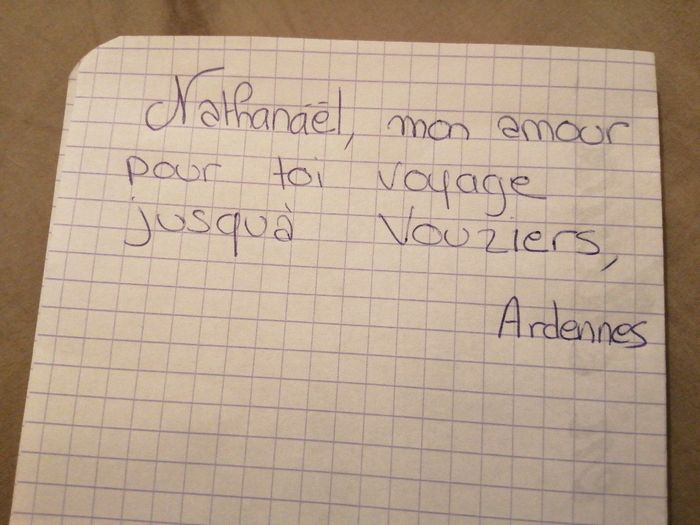 Nathanaël, mon amour
pour toi voyage
jusquà Vouziers,
Ardennes